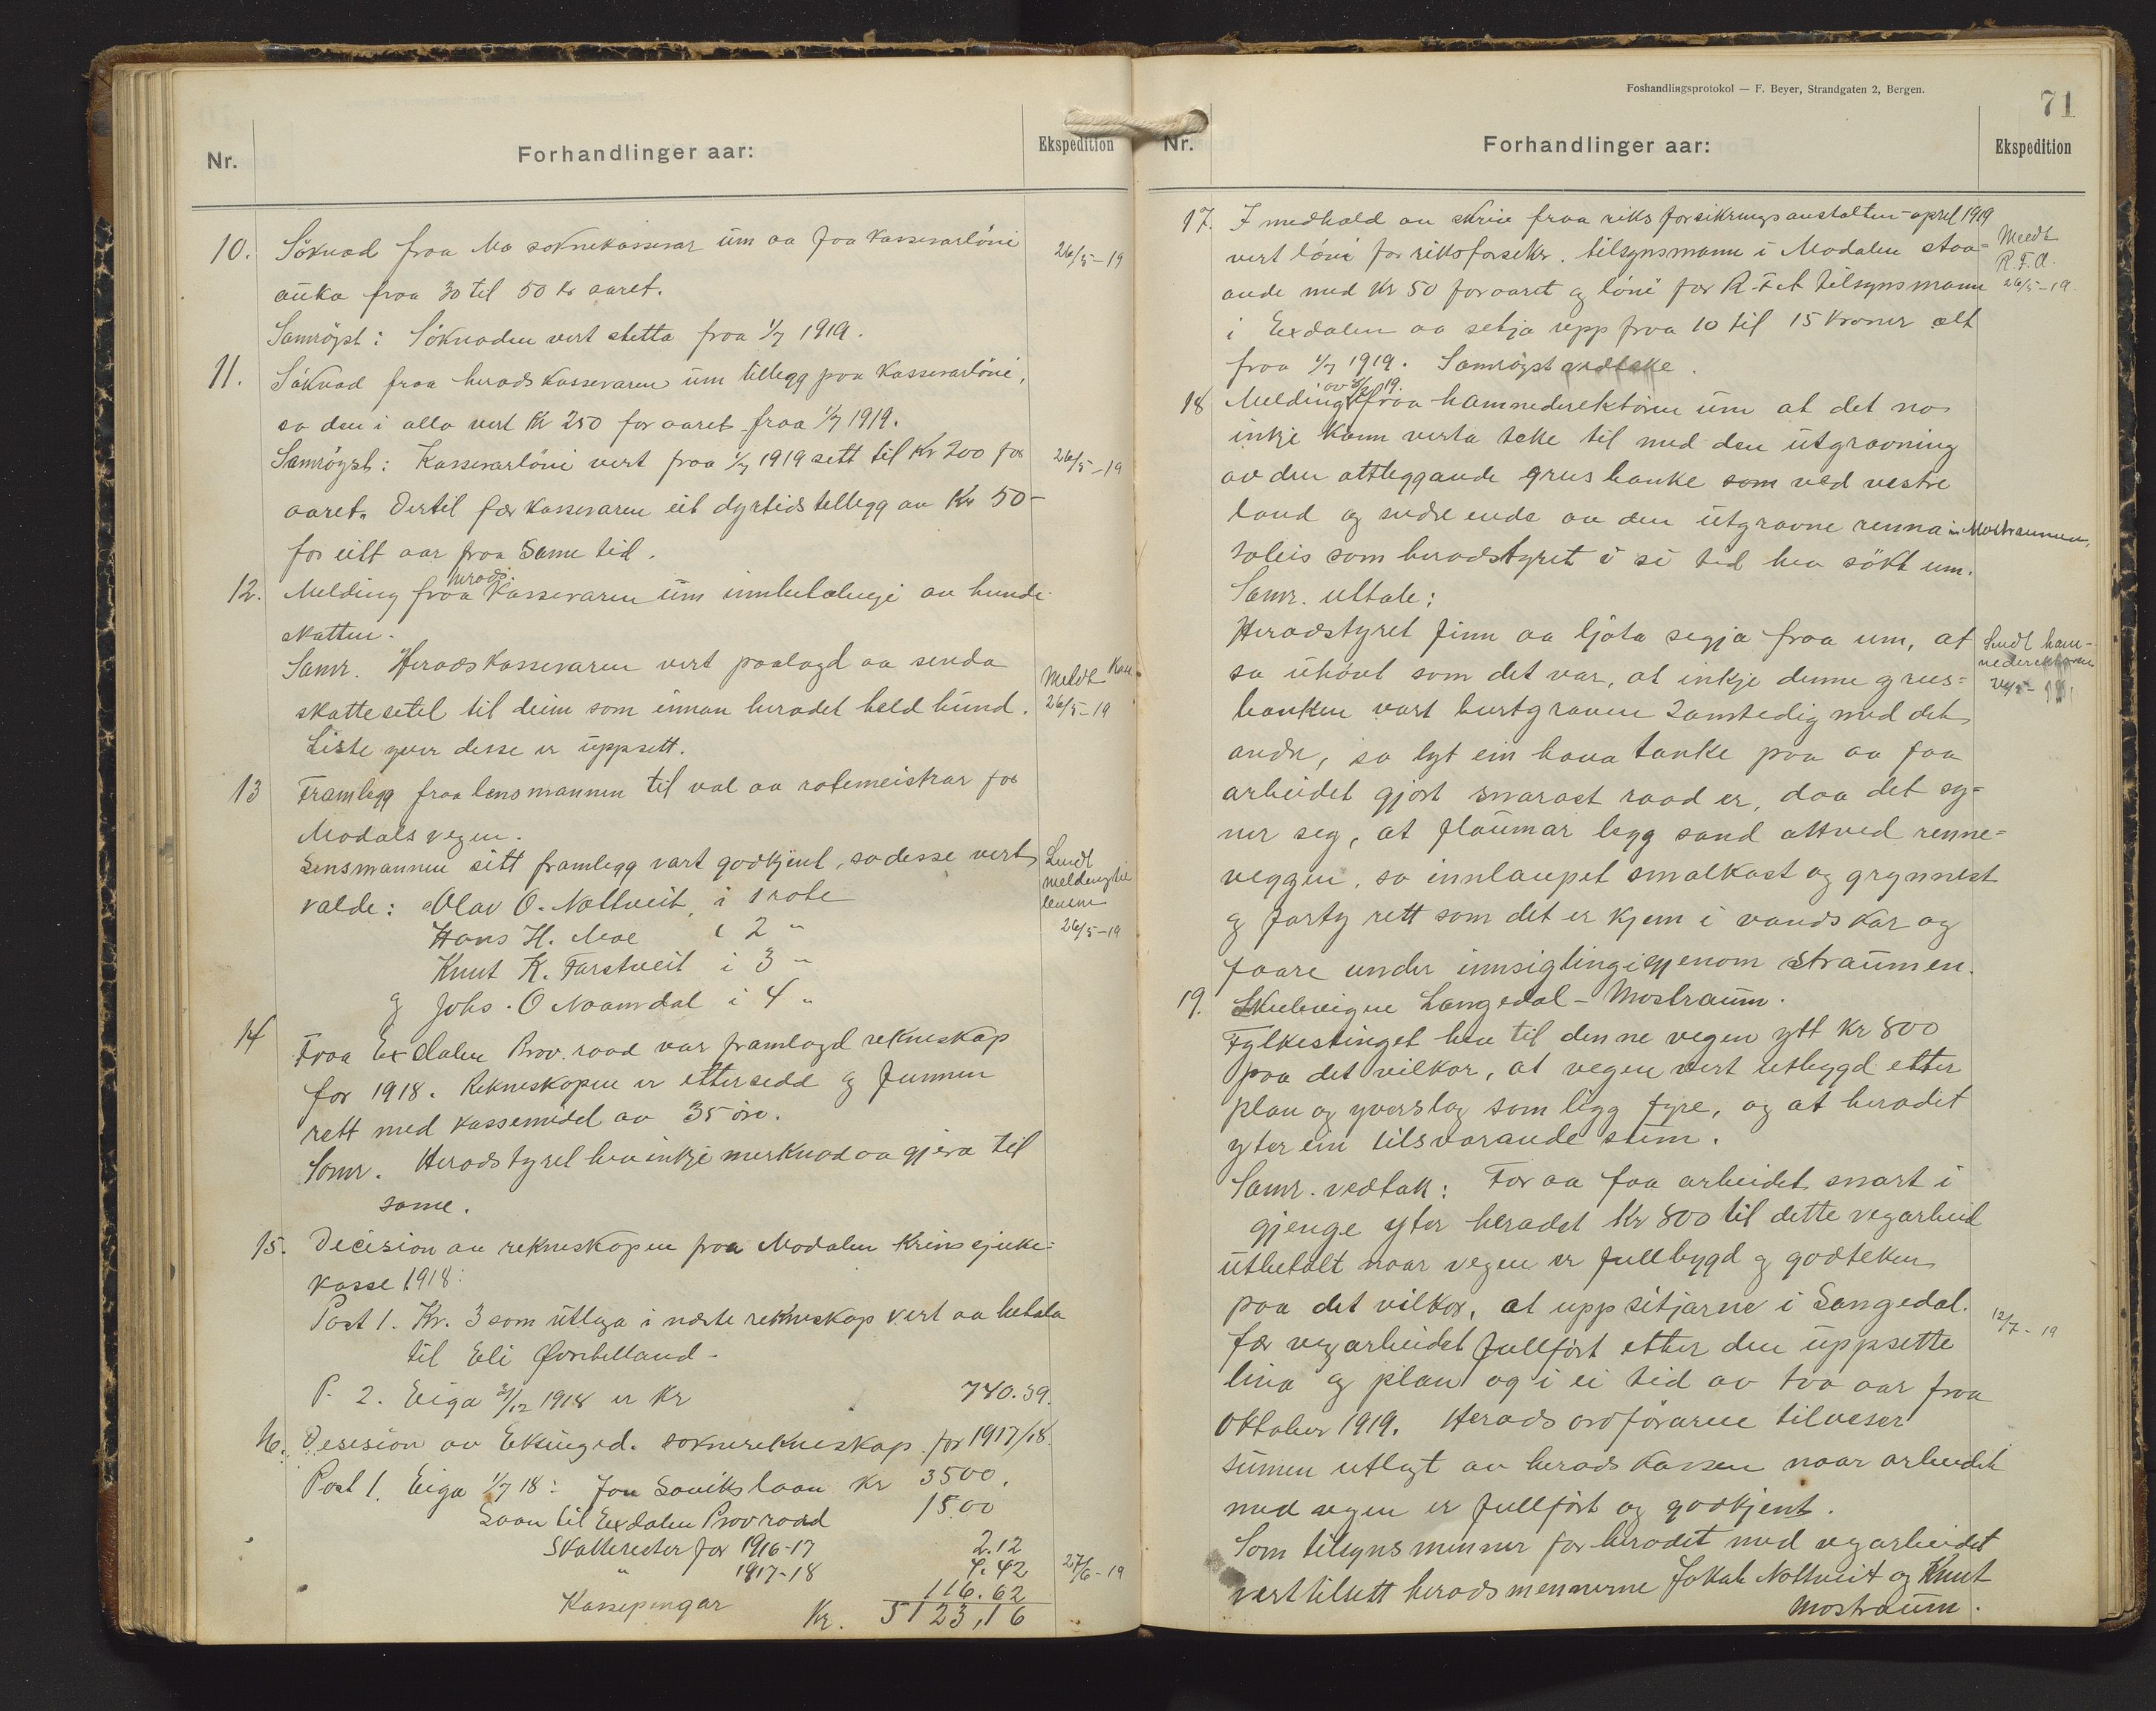 Nr.
Forhandlinger aar:
Ekspedition
10. Söknad fraa Mo soknekasserar üm aa faa kasserarlöni
26/5-19
aüka fraa 30 til 50 kr aaret.
Samröyst: Söknaden vert stetta fraa 1/7 1919.
11. Söknad fraa heradskasseraren üm tillegg paa kasserarlöni,
so den i alla vert Kr 250 for aaret fraa 1/7 1919.
Samröyst: Kasserarlöni vert fraa 1/7 1919 sett til Kr 200 for
26/5-19
aaret. Dertil fær kasseraren eit dyrtidstillegg av Kr 50-
for eitt aar fraa same tid.
12. Melding fraa herads kasseraren üm innbetalingi av hunde-
skatten.
Samr. Heradskasseraren vert paalagd aa senda
Meldt Kas.
skattesetel til deim som innan heradet held hünd.
26/5-19
Liste yver desse er üppsett.
13 Framlegg fraa lensmannen til val av rotemeistrar for
Modalsvegen.
Lensmannen sitt framlegg vart godkjent, so desse vert
Sendt
melding til
lensm
valde: Olav O. Nottveit i 1 rote
Hans H. Moe i 2 "
26/5-19
Knut K. Farstveit i 3 "
og Johs. O Naamdal i 4 "
14 Fraa Exdalen Prov. raad var framlagd rekneskap
for 1918. Rekneskapen er ettersedd og funnen
rett med kassemidel av 35 öre.
Samr. Heradstyret hev inkje merknad aa gjera til
same.
15. Decision av rekneskapen fraa Modalen Krinssjuke-
kasse 1918:
Post 1. Kr. 3 som ütlega i næste rekneskap vert aa betala
til Eli Övrehelland-
P. 2. Eiga 31/12 1918 er Kr 740.39.
16. Desision av Eksinged. soknerekneskap for 1917/18.
Post 1. Eiga 1/7 18: Jon Saviks laan Kr 3500.
Laan til Exdalen Provraad 1500
Skatterester for 1916-17 2.12
" 1917-18 4.42
27/6-19
Kassepengar 116.62
Kr. 5123,16
Foshandlingsprotokol — F. Beyer, Strandgaten 2, Bergen.
71
Nr.
Forhandlinger aar:
Ekspedition
17. I medhald av skriv fraa riksforsikringsanstalten - april 1919
vert löni for riksforsekr. tilsynsmann i Modalen staa-
Meldt
R.F.A.
ande med Kr 50 for aaret og löni for R-F-A tilsynsmann
26/5-19.
i Exdalen aa setja upp fraa 10 til 15 Kroner alt
fraa 1/7 1919. Samröyst vedteke.
18 Melding fraa hamnedirektören üm at det no
inkje kann verta teke til med den ütgravning
av den attleggande grusbanke som ved vestre
land og endre ende av den ütgravne renna i Mostraumen,
soleis som heradstyret i si tid hev sökt um.
Samr. uttale:
Heradstyret finn aa ljota segja fraa um, at
Sendt ham-
nedirektören
so ühövt som det var, at inkje denne grus-
26/5-
banken vart burtgraven samtedig med det
andre, so lyt ein hava tanke paa aa faa
arbeidet gjort snarast raad er, daa det sy-
ner seg, at flaümar legg sand attved renne-
veggen, so innlaupet smalkast og grynnest
og farty rett som det er kjem i vandskar og
faare under innsigling igjenom straümen.
19. Skulevegen Langedal - Mostraüm.
Fylkestinget hev til denne vegen ytt Kr 800
paa det vilkor, at vegen vert utbygd etter
plan og yverslag som ligg fyre, og at heradet
yter ein tilsvarande süm.
Samr. vedtak: For aa faa arbeidet snart i
gjenge yter heradet Kr 800 til dette vegarbeid
ütbetalt naar vegen er fullbygd og godteken
paa det vilkor, at uppsitjarne i Langedal.
12/7-19
fær vegarbeidet fullfört etter den üppsette
lina og plan og i ei tid av tvo aar fraa
oktober 1919. Heradsordföraren tilveser
sümen utlagt av heradskassen naar arbeidet
med vegen er fullfört og godkjent.
Som tilsynsmenner for heradet med vegarbeidet
vert tilsett heradsmennerne Jakob Nottveit og Knut
Mostraüm.